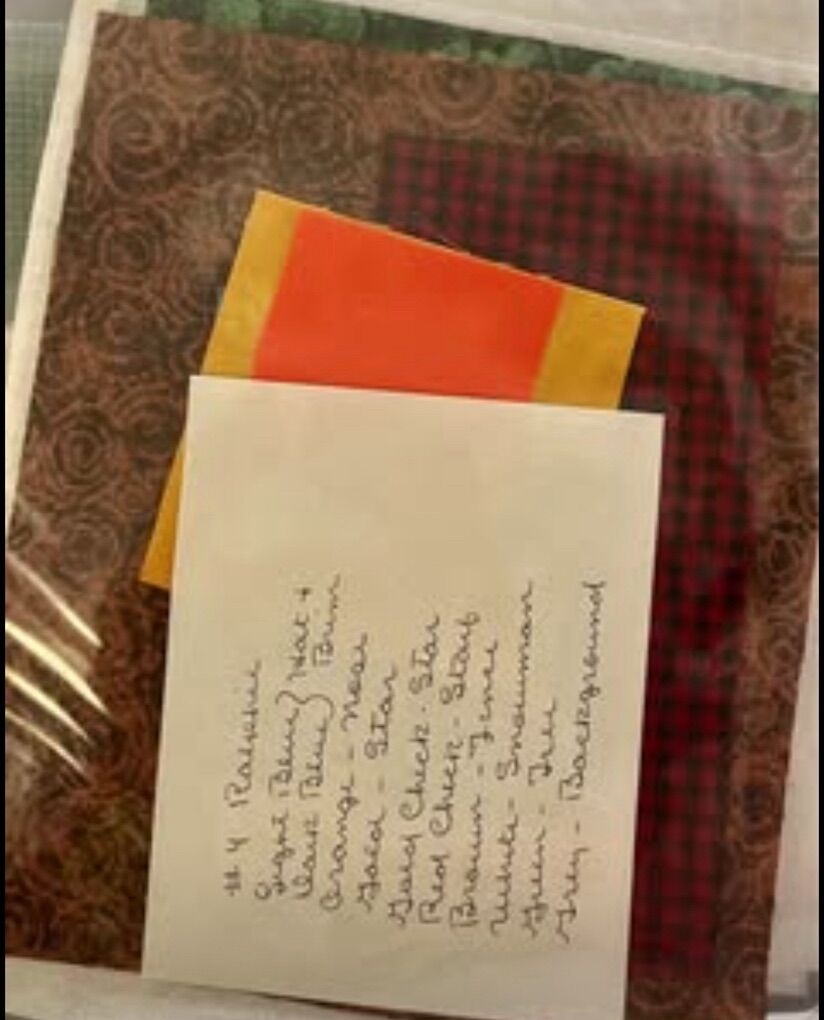 # 4 Ralphie
Light Blue } Hat +
Dark Blue } Brim
Orange - Nose
Gold - Star
Gold Check - Star
Red Check - Star
Brown - Fence
White - Snowman
Green - Tree
Grey - Background